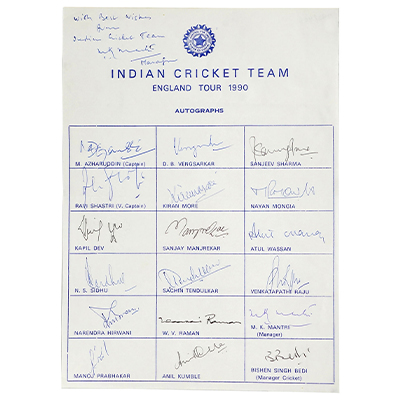 With Best Wishes
from
Indian Cricket Team
Manager
INDIAN CRICKET TEAM
ENGLAND TOUR 1990
AUTOGRAPHS
M. AZHARUDDIN (Captain) D. B. VENGSARKAR SANJEEV SHARMA
RAVI SHASTRI (V. Captain) KIRAN MORE NAYAN MONGIA
KAPIL DEV SANJAY MANJREKAR ATUL WASSAN
N. S. SIDHU SACHIN TENDULKAR VENKATAPATHY RAJU
NARENDRA HIRWANI W. V. RAMAN M. K. MANTRE
(Manager)
MANOJ PRABHAKAR ANIL KUMBLE BISHEN SINGH BEDI
(Manager Cricket)